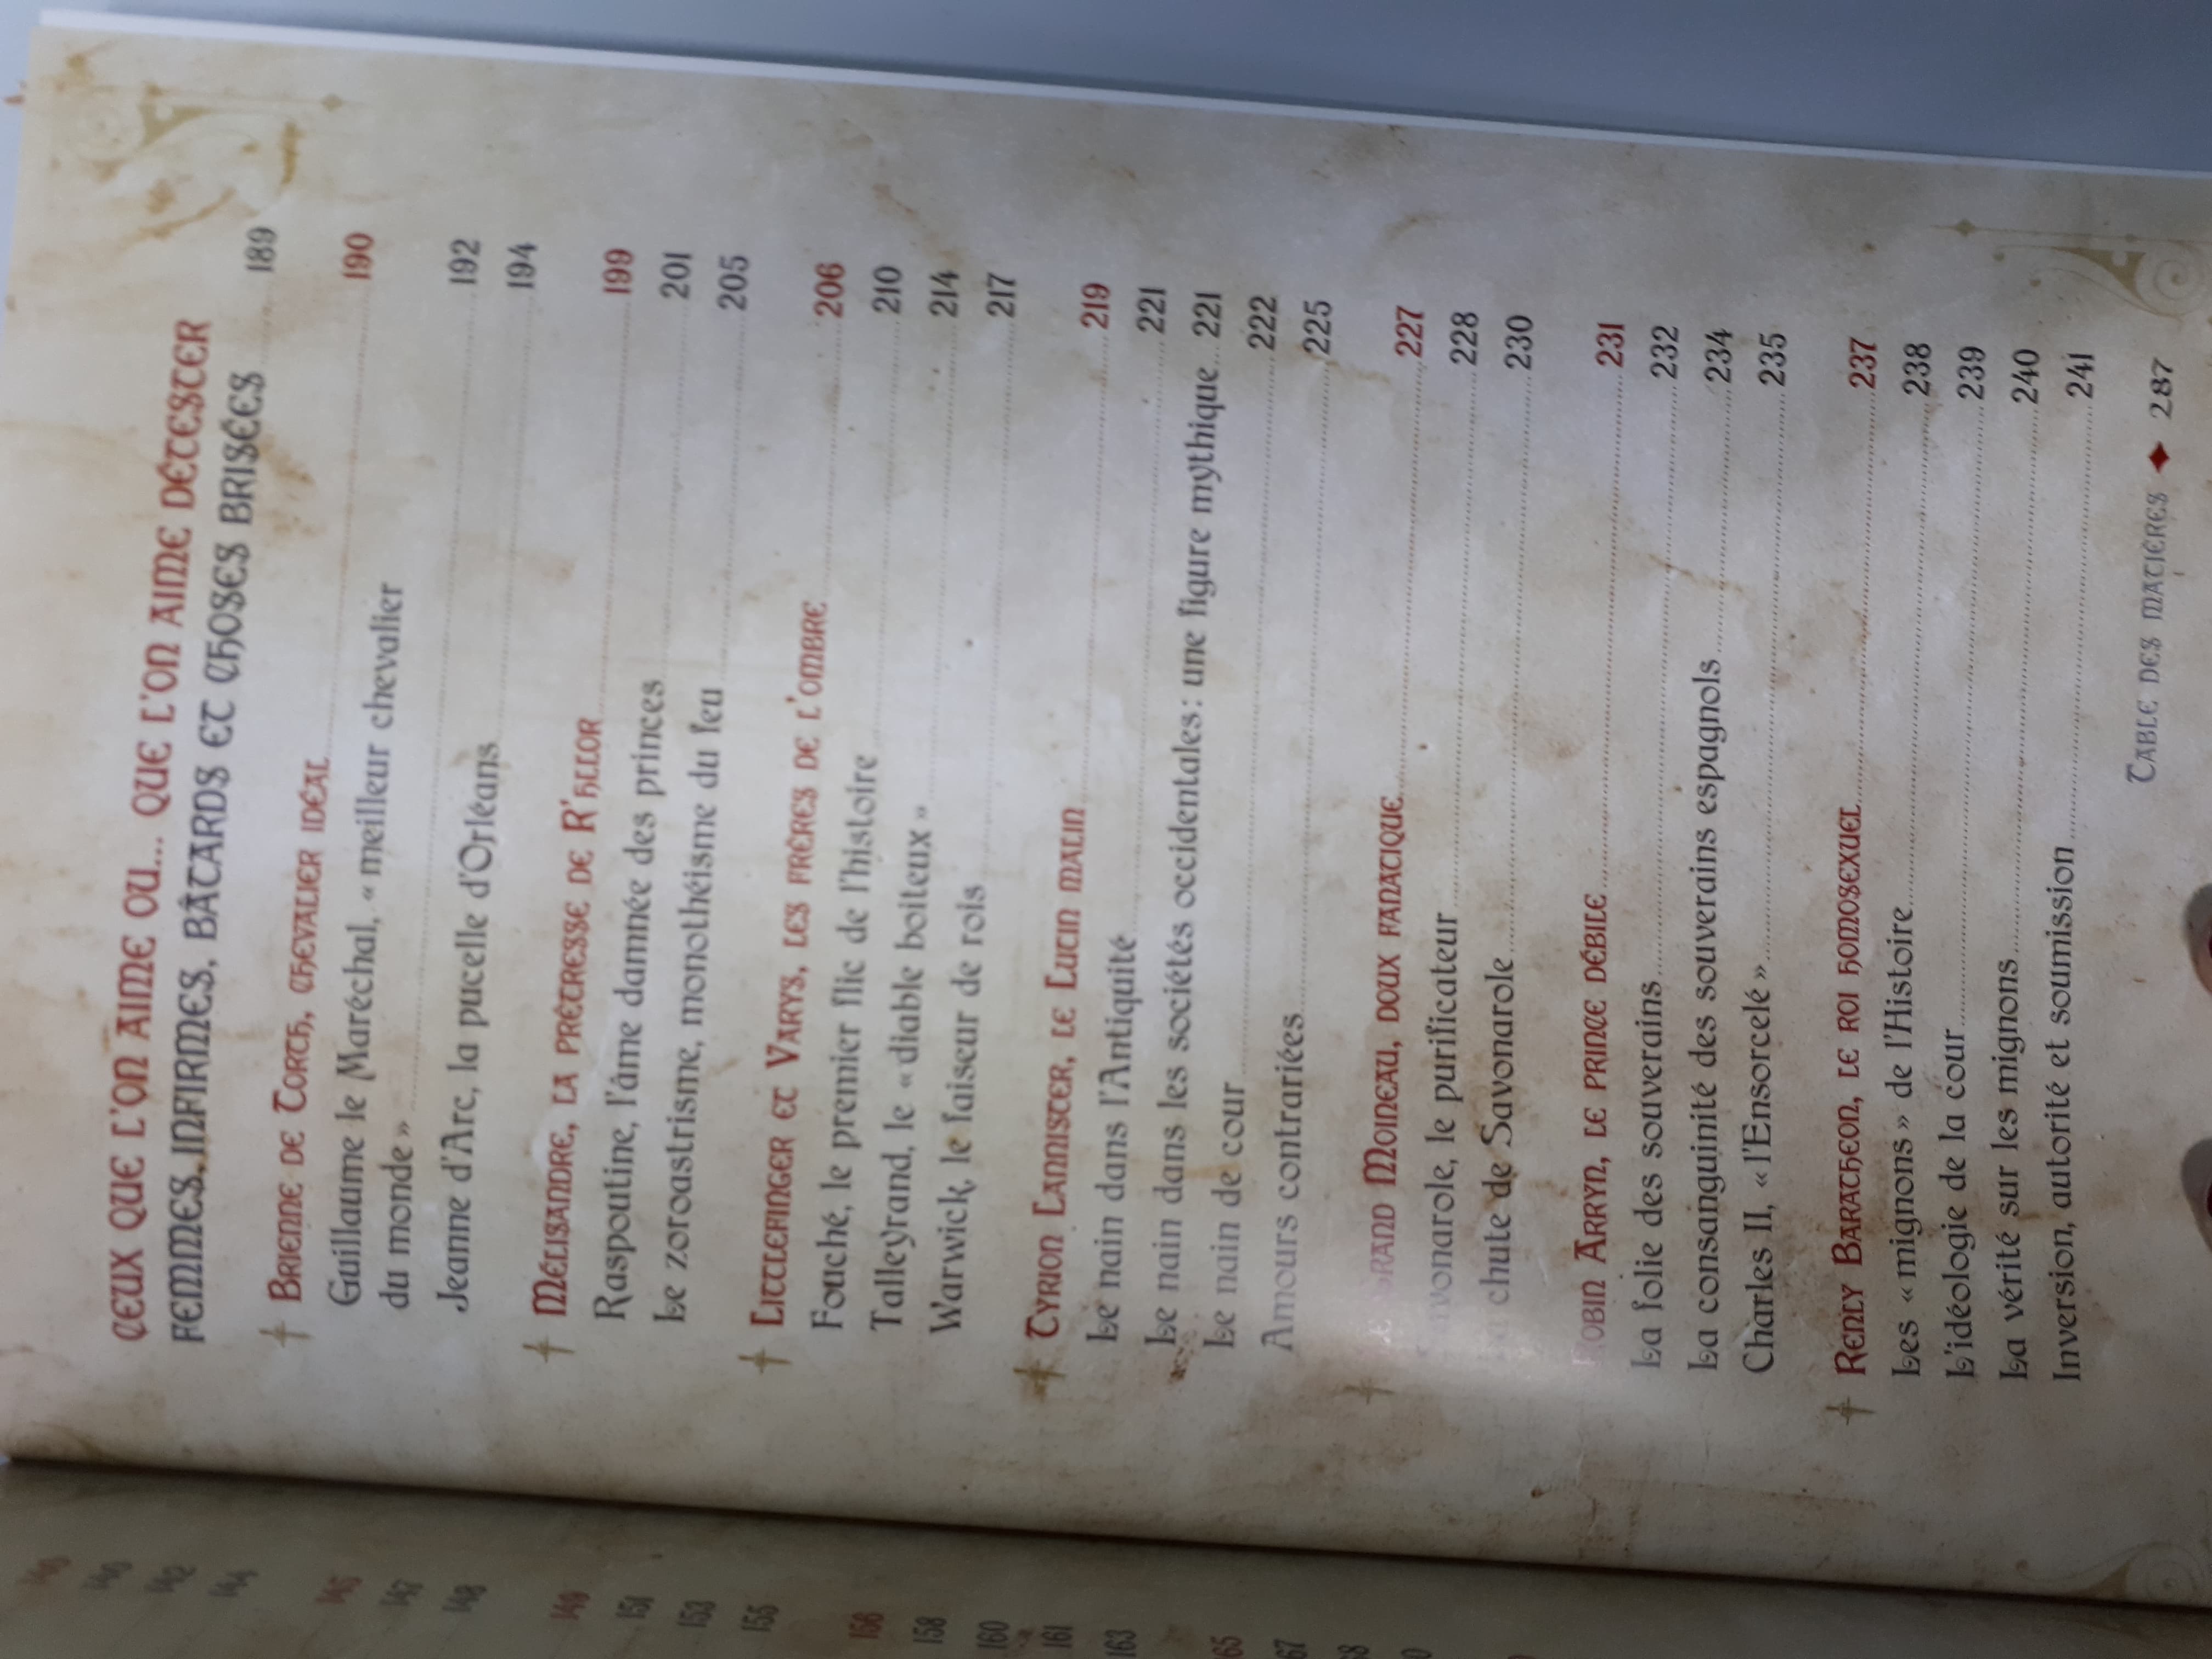 CEUX QUE L'ON AIME OU... QUE L'ON AIME DÉTESTER
FEMMES, INFIRMES, BÂTARDS ET CHOSES BRISÉES 189
BRIENNE DE TORTH, CHEVALIER IDÉAL 190
Guillaume le Maréchal, « meilleur chevalier
du monde » 192
Jeanne d'Arc, la pucelle d'Orléans 194
MÉLISANDRE, LA PRÊTRESSE DE R'HLLOR 199
Raspoutine, l'âme damnée des princes 201
Le zoroastrisme, monothéisme du feu 205
LITTLEFINGER ET VARYS, LES FRÈRES DE L'OMBRE 206
Fouché, le premier flic de l'histoire 210
Talleyrand, le « diable boiteux » 214
Warwick, le faiseur de rois 217
TYRION LANNISTER, LE LUTIN MALIN 219
Le nain dans l'Antiquité 221
Le nain dans les sociétés occidentales : une figure mythique 221
Le nain de cour 222
Amours contrariées 225
GRAND MOINEAU, DOUX FANATIQUE 227
vonarole, le purificateur 228
chute de Savonarole 230
ROBIN ARRYN, LE PRINCE DÉBILE 231
La folie des souverains 232
La consanguinité des souverains espagnols 234
Charles II, « l'Ensorcelé » 235
RENLY BARATHEON, LE ROI HOMOSEXUEL 237
Les « mignons » de l'Histoire 238
L'idéologie de la cour 239
La vérité sur les mignons 240
Inversion, autorité et soumission 241
TABLE DES MATIÈRES ♦ 287
142
144
145
147
148
149
151
153
155
156
158
160
161
163
65
67